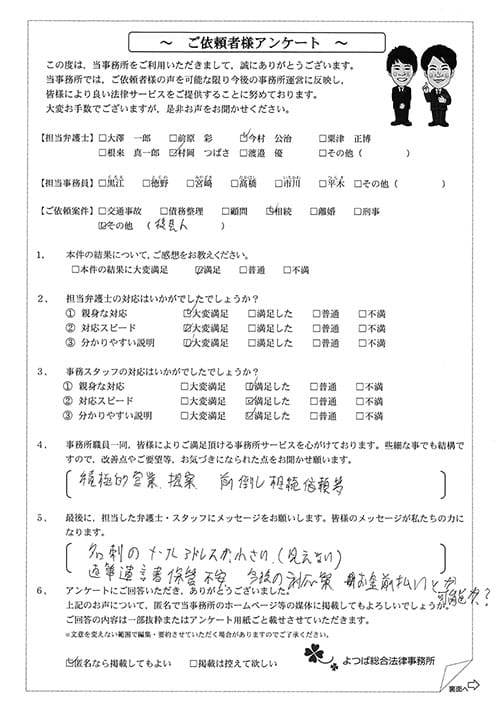 ～ ご依頼者様アンケート ～
この度は，当事務所をご利用いただきまして，誠にありがとうございます。
当事務所では，ご依頼者様の声を可能な限り今後の事務所運営に反映し，
皆様により良い法律サービスをご提供することに努めております。
大変お手数でございますが，是非お声をお聞かせください。
【担当弁護士】□大澤 一郎 □前原 彩 ☑今村 公治 □粟津 正博
□根来 真一郎 ☑村岡 つばさ □渡邉 優 □その他（ ）
【担当事務員】□黒江 □徳野 □宮﨑 □髙橋 □市川 □平木 □その他（ ）
【ご依頼案件】□交通事故 □債務整理 □顧問 ☑相続 □離婚 □刑事
☑その他 （後見人 ）
1． 本件の結果について，ご感想をお教えください。
□本件の結果に大変満足 ☑満足 □普通 □不満
2． 担当弁護士の対応はいかがでしたでしょうか？
① 親身な対応 ☑大変満足 □満足した □普通 □不満
② 対応スピード ☑大変満足 □満足した □普通 □不満
③ 分かりやすい説明 ☑大変満足 □満足した □普通 □不満
3． 事務スタッフの対応はいかがでしたでしょうか？
① 親身な対応 □大変満足 ☑満足した □普通 □不満
② 対応スピード □大変満足 ☑満足した □普通 □不満
③ 分かりやすい説明 □大変満足 ☑満足した □普通 □不満
4． 事務所職員一同，皆様によりご満足頂ける事務所サービスを心がけております。些細な事でも結構で
すので，改善点やご要望等，お気づきになられた点をお聞かせ願います。
積極的営業、提案 前倒し相続依頼等
5． 最後に，担当した弁護士・スタッフにメッセージをお願いします。皆様のメッセージが私たちの力に
なります。
名刺のメールアドレスが小さい（見えない）
遺言書保管不安 今後の対応策 お金前払いとか
可能か？
6． アンケートにご回答いただき，ありがとうございました。
上記のお声について，匿名で当事務所のホームページ等の媒体に掲載してもよろしいでしょうか。
ご回答の内容は一部抜粋またはアンケート用紙ごと載せさせていただきます。
※文意を変えない範囲で編集・要約させていただく場合がありますのでご了承ください。
☑匿名なら掲載してもよい □掲載は控えて欲しい
よつば総合法律事務所
裏面へ